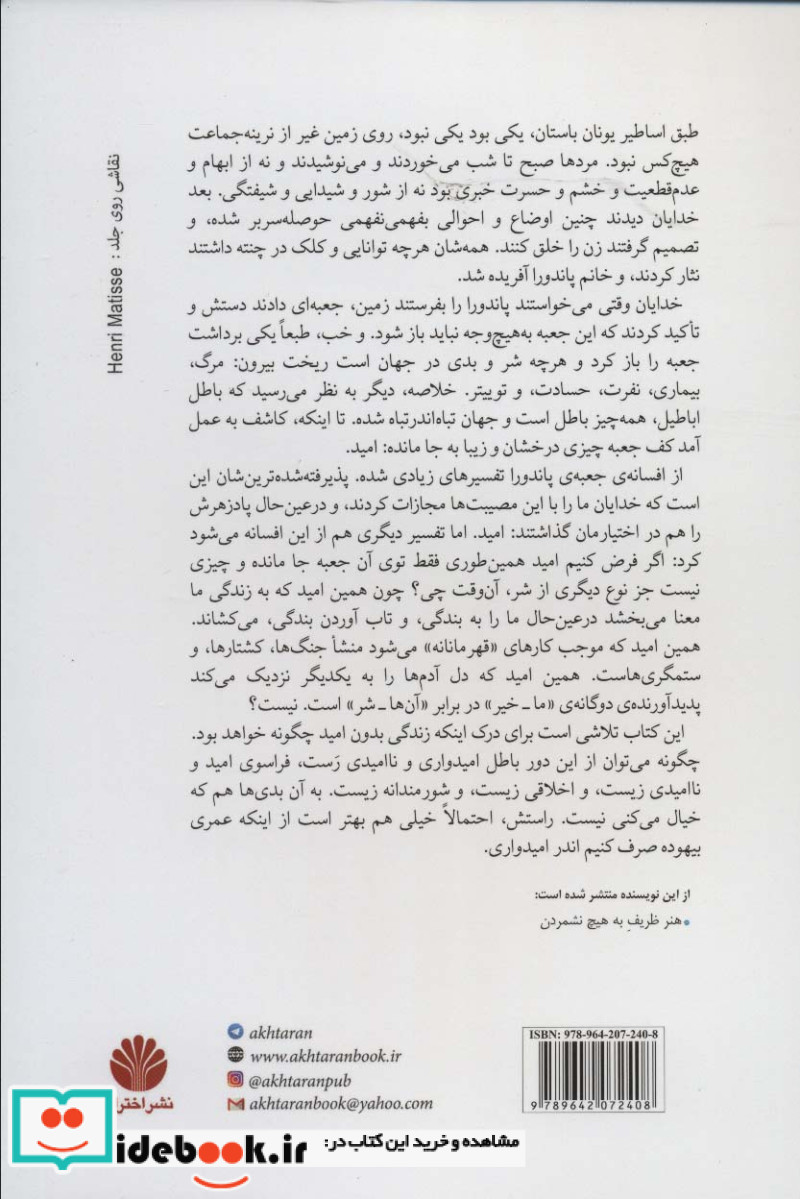 طبق اساطیر یونان باستان، یکی بود یکی نبود، روی زمین غیر از نرینه‌جماعت
هیچ‌کس نبود. مردها صبح تا شب می‌خوردند و می‌نوشیدند و نه از ابهام و
عدم‌قطعیت و خشم و حسرت خبری بود نه از شور و شیدایی و شیفتگی. بعد
خدایان دیدند چنین اوضاع و احوالی بفهمی‌نفهمی حوصله‌سربر شده، و
تصمیم گرفتند زن را خلق کنند. همه‌شان هرچه توانایی و کلک در چنته داشتند
نثار کردند، و خانم پاندورا آفریده شد.
خدایان وقتی می‌خواستند پاندورا را بفرستند زمین، جعبه‌ای دادند دستش و
تأکید کردند که این جعبه به‌هیچ‌وجه نباید باز شود. و خب، طبعاً یکی برداشت
جعبه را باز کرد و هرچه شر و بدی در جهان است ریخت بیرون: مرگ،
بیماری، نفرت، حسادت، و توییتر. خلاصه، دیگر به نظر می‌رسید که باطل
اباطیل، همه‌چیز باطل است و جهان تباه‌اندرتباه شده. تا اینکه، کاشف به عمل
آمد کف جعبه چیزی درخشان و زیبا به جا مانده: امید.
از افسانه‌ی جعبه‌ی پاندورا تفسیرهای زیادی شده. پذیرفته‌شده‌ترین‌شان این
است که خدایان ما را با این مصیبت‌ها مجازات کردند، و درعین‌حال پادزهرش
را هم در اختیارمان گذاشتند: امید. اما تفسیر دیگری هم از این افسانه می‌شود
کرد: اگر فرض کنیم امید همین‌طوری فقط توی آن جعبه جا مانده و چیزی
نیست جز نوع دیگری از شر، آن‌وقت چی؟ چون همین امید که به زندگی ما
معنا می‌بخشد درعین‌حال ما را به بندگی، و تاب آوردن بندگی، می‌کشاند.
همین امید که موجب کارهای «قهرمانانه» می‌شود منشأ جنگ‌ها، کشتارها، و
ستمگری‌هاست. همین امید که دل آدم‌ها را به یکدیگر نزدیک می‌کند
پدیدآورنده‌ی دوگانه‌ی «ما ـ خیر» در برابر «آن‌ها ـ شر» است. نیست؟
این کتاب تلاشی است برای درک اینکه زندگی بدون امید چگونه خواهد بود.
چگونه می‌توان از این دور باطل امیدواری و ناامیدی رَست، فراسوی امید و
ناامیدی زیست، و اخلاقی زیست، و شورمندانه زیست. به آن بدی‌ها هم که
خیال می‌کنی نیست. راستش، احتمالاً خیلی هم بهتر است از اینکه عمری
بیهوده صرف کنیم اندر امیدواری.
از این نویسنده منتشر شده است:
• هنر ظریفِ به هیچ نشمردن
نقاشی روی جلد : Henri Matisse
akhtaran
www.akhtaranbook.ir
@akhtaranpub
akhtaranbook@yahoo.com
ISBN: 978-964-207-240-8
9 789642 072408
نشر اختران
مشاهده و خرید این کتاب در:
idebook.ir